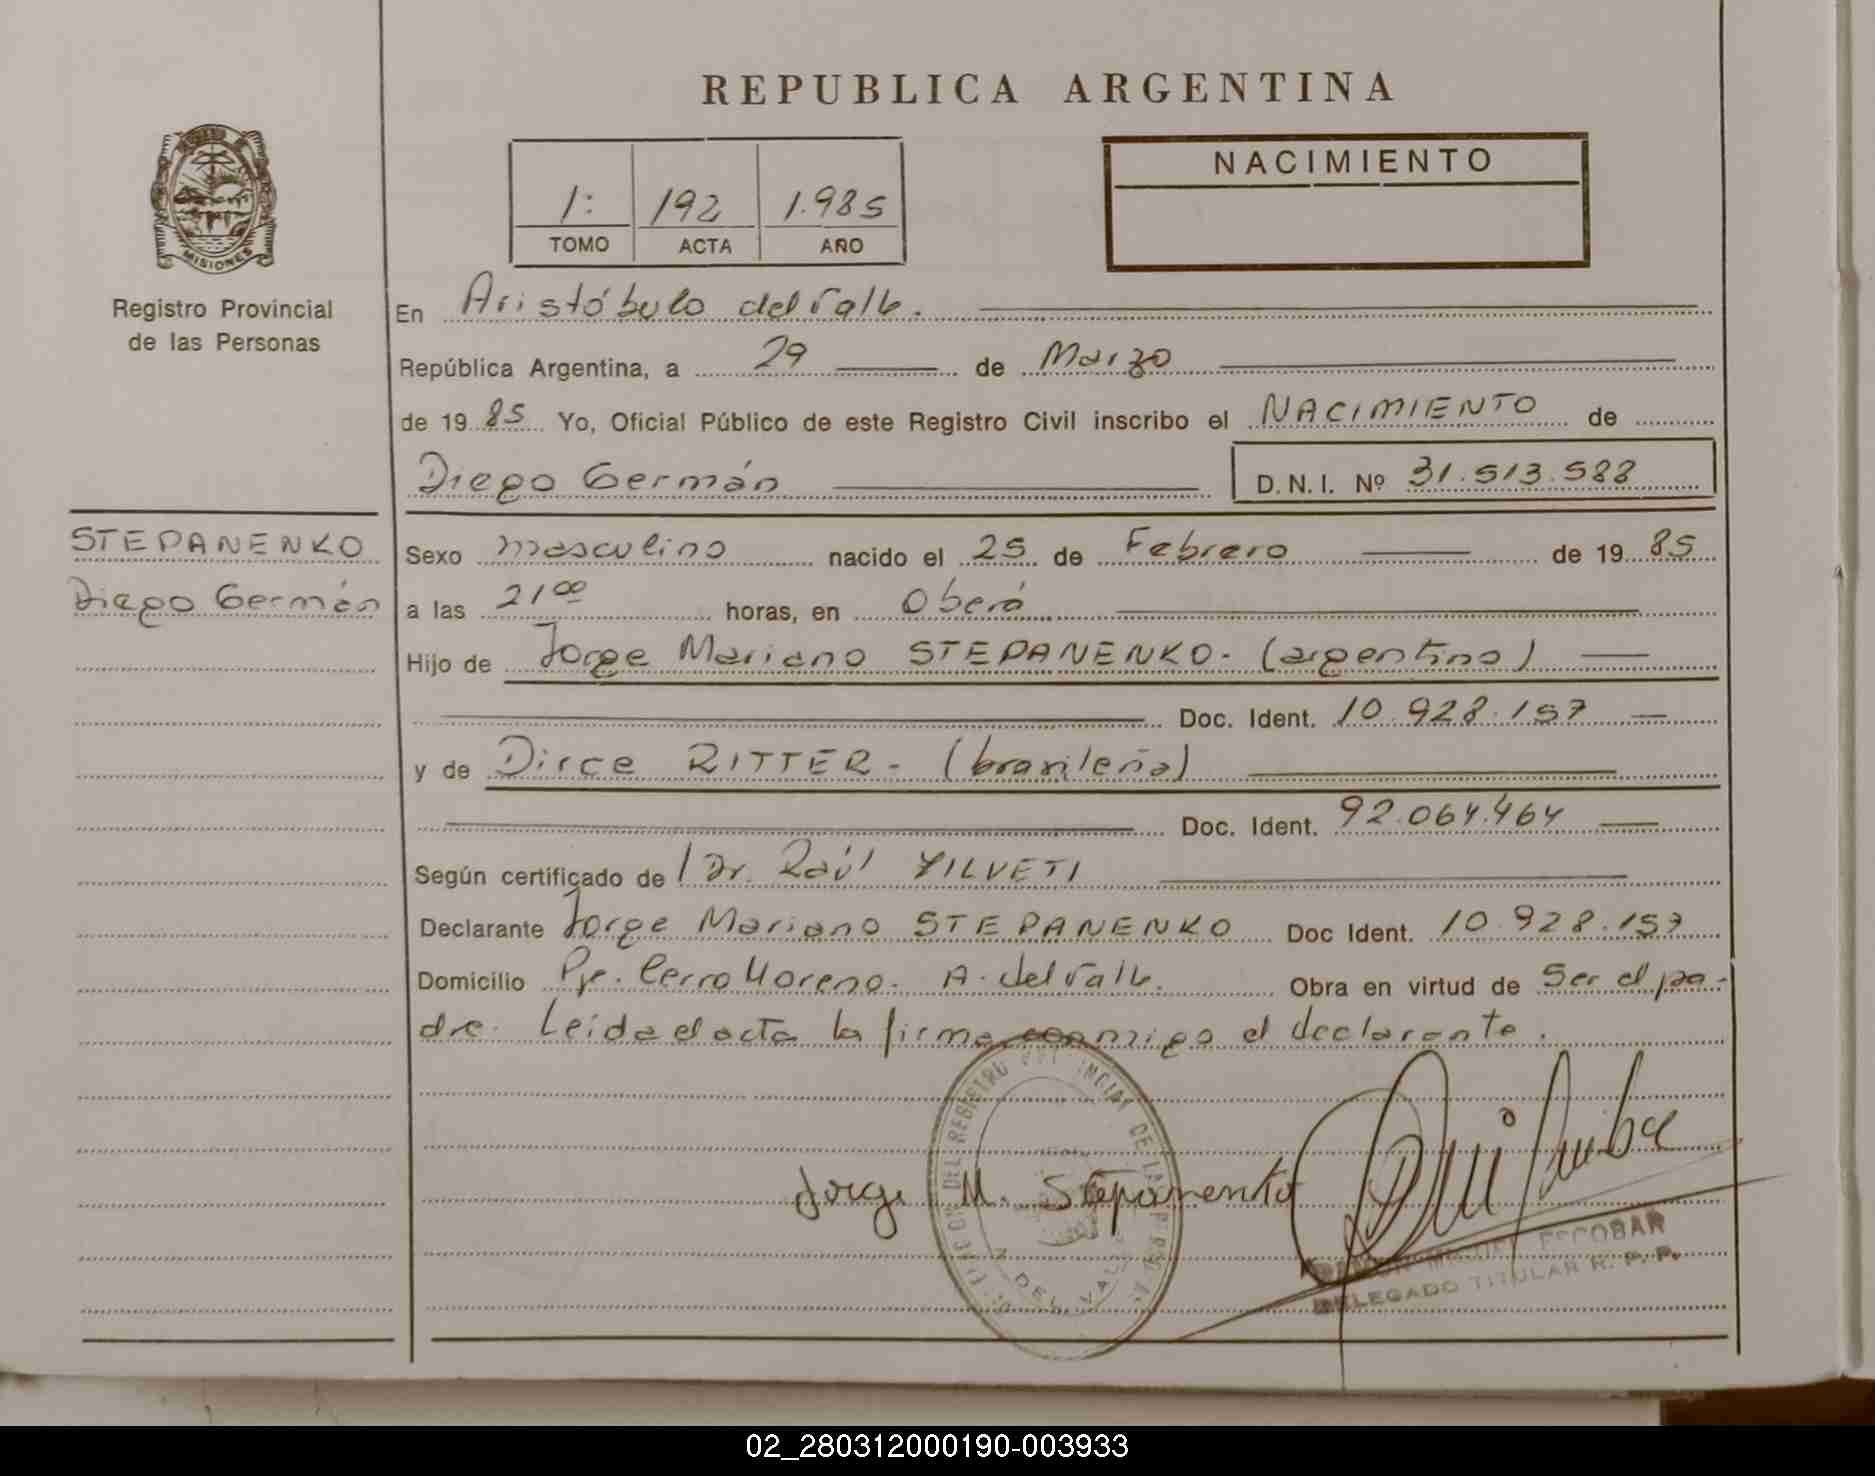 REPUBLICA ARGENTINA
MISIONES
Registro Provincial
de las Personas
1: 192 1.985
TOMO ACTA AÑO
NACIMIENTO
En Aristóbulo del Valle.
República Argentina, a 29 de Marzo
de 1985 Yo, Oficial Público de este Registro Civil inscribo el NACIMIENTO de
Diego Germán D.N.I. Nº 31.513.588
STEPANENKO
Diego Germán
Sexo masculino nacido el 25 de Febrero de 1985
a las 21 00 horas, en Oberá
Hijo de Jorge Mariano STEPANENKO - (argentino)
Doc. Ident. 10.928.157
y de Dirce RITTER - (brasileña)
Doc. Ident. 92.064.464
Según certificado de Dr. Raúl YILVETI
Declarante Jorge Mariano STEPANENKO Doc Ident. 10.928.157
Domicilio Pje. Cerro Moreno. A. del Valle. Obra en virtud de Ser el pa-
dre. Leída el acta la firma conmigo el declarante.
Jorge M. Stepanenko
ESCOBAR
DELEGADO TITULAR R. P. P.
DEL REGISTRO DE LAS
A. DEL VALLE
02_280312000190-003933